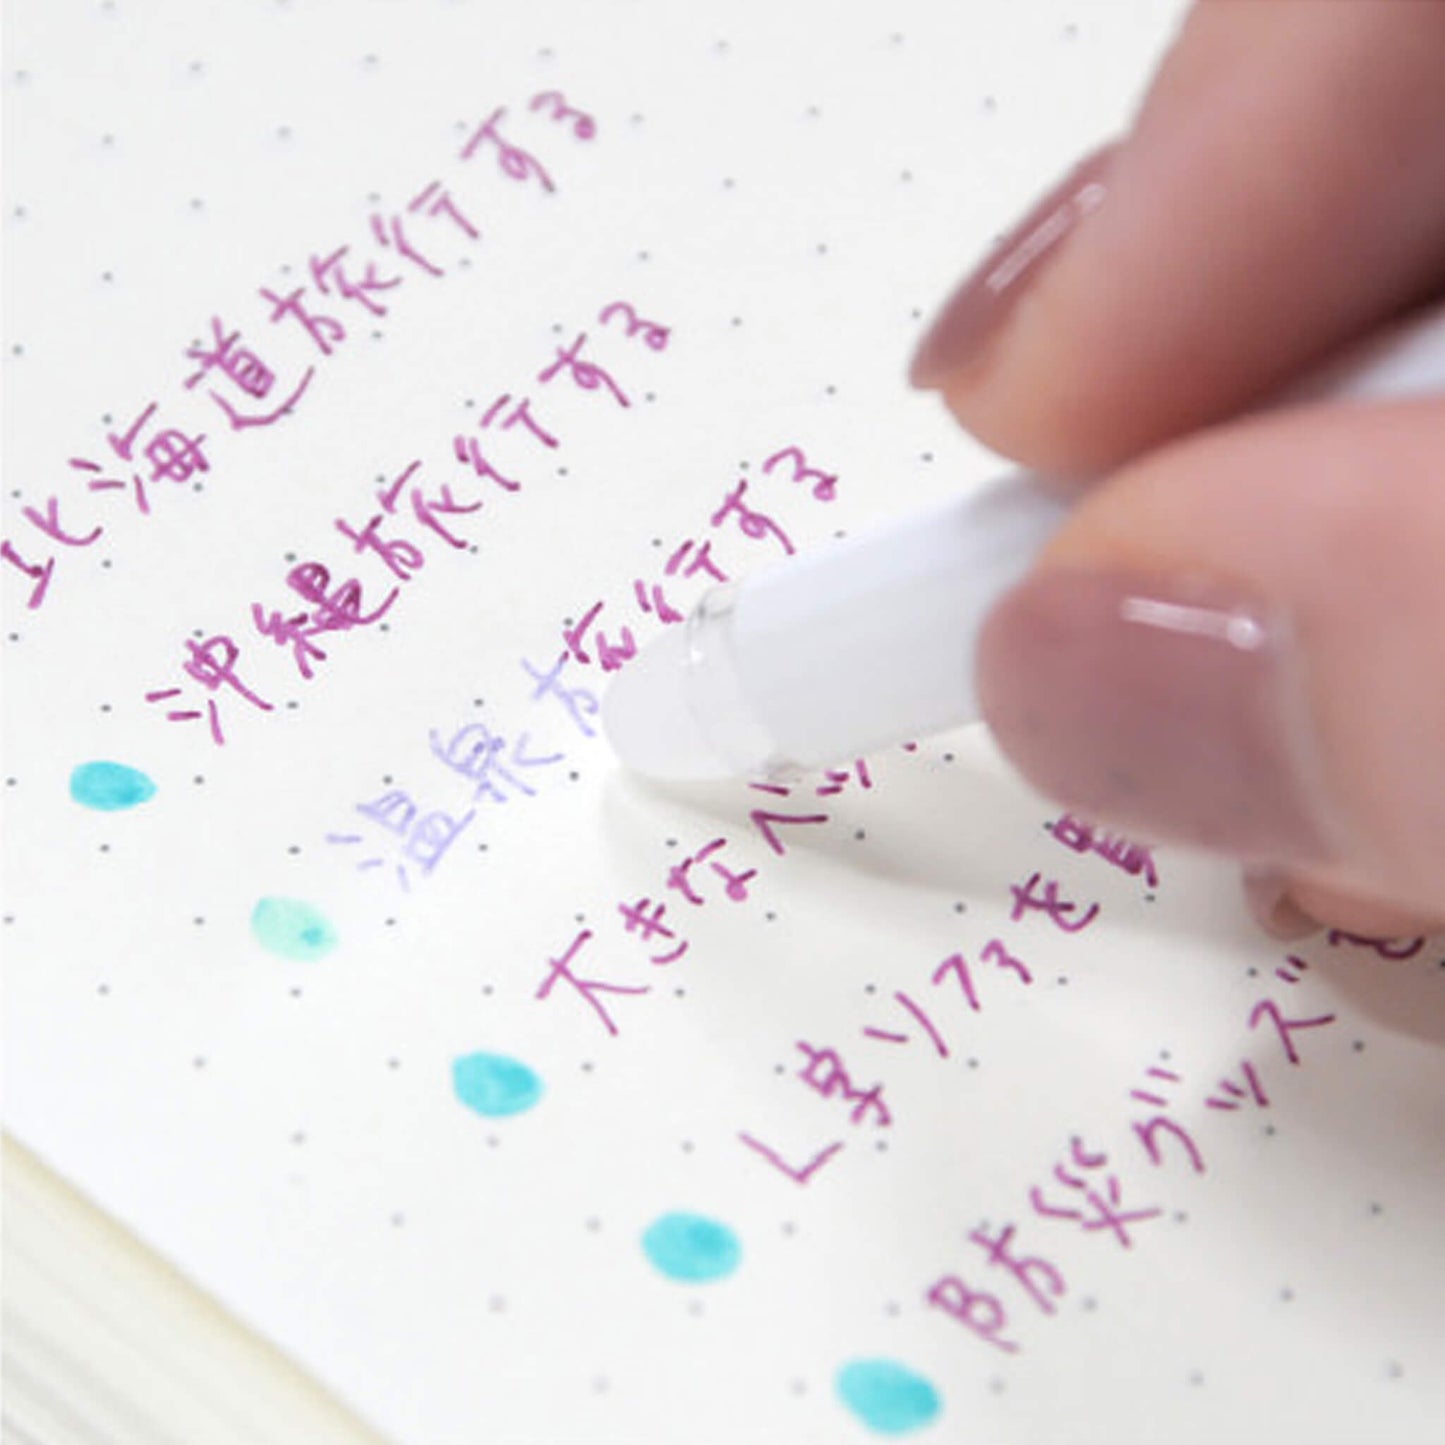 北海道旅行する
沖縄旅行する
温泉旅行する
大きなベッ
くまリュ
防災グッズを